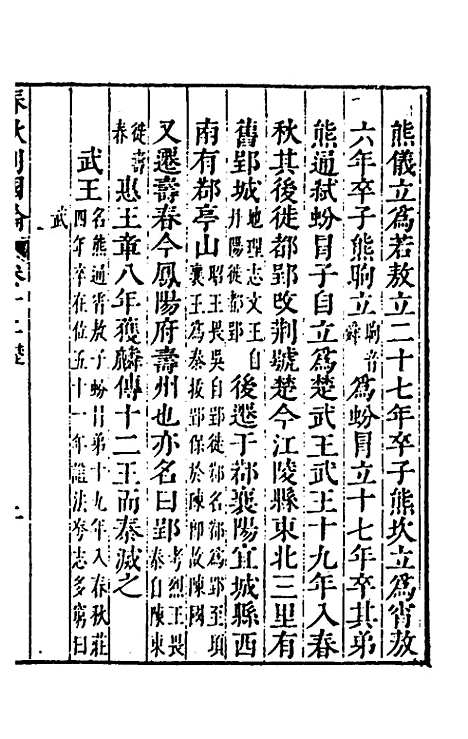 熊儀立爲若敖立二十七年卒子熊坎立爲宵敖
六年卒子熊眴立眴音舜爲蚡冒立十七年卒其弟
熊通弒蚡冒子自立爲楚武王武王十九年入春
秋其後徙都郢改荆號楚今江陵縣東北三里有
舊郢城地理志文王自丹陽徙都郢後遷于鄀襄陽宜城縣西
南有鄀亭山昭王畏吳自郢徙鄀名鄀爲郢至頃襄王爲秦拔郢保於陳卽故陳國
又遷壽春今鳳陽府壽州也亦名曰郢考烈王畏秦自陳東
徙壽春惠王章八年獲麟傳十二王而秦滅之
武王名熊通宵敖子蚡冒弟十九年入春秋莊四年卒在位五十一年諡法夸志多窮曰
武
春秋列國論 卷十二 楚 一